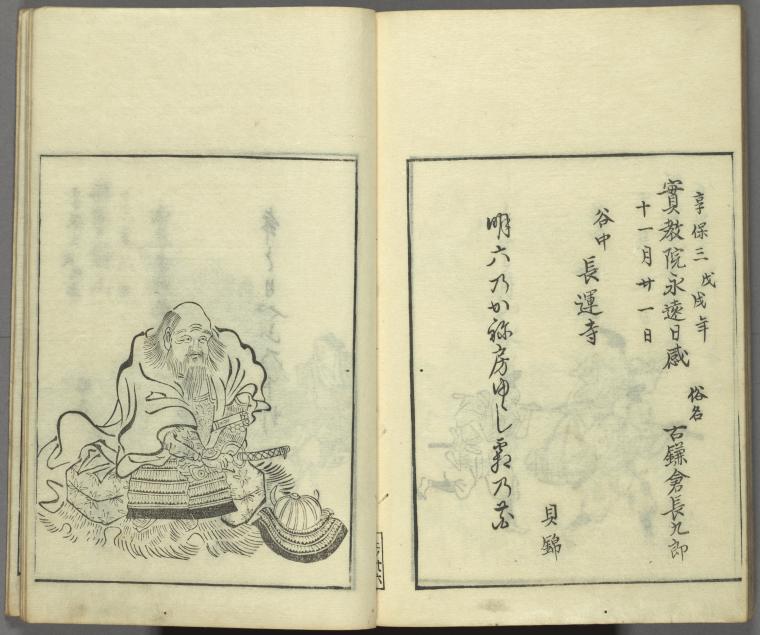 享保三戊戌年
十一月廿一日
實教院永遠日感
俗名 古鎌倉長九郎
谷中 長運寺
明六乃か祢房ゆし霜乃花
貝錦
廿六